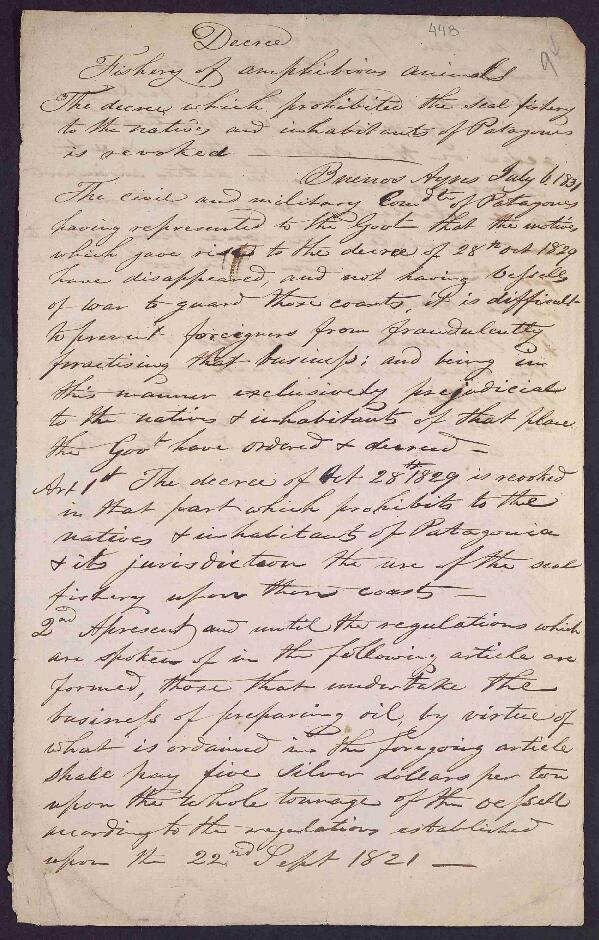 448
94
Decree
Fishery of amphibious animals
The decree which prohibited the seal fishery
to the natives and inhabitants of Patagones
is revoked
Buenos Ayres July 6. 1831
The civil and military Comdte of Patagones
having represented to the Govt that the motives
which gave rise to the decree of 28th Oct 1829
have disappeared and not having vessels
of war to guard those coasts, it is difficult
to prevent foreigners from fraudulently
practising that business; and being in
this manner exclusively prejudicial
to the natives & inhabitants of that place
the Govt have ordered & decreed —
Art 1st The decree of Oct 28th 1829 is revoked
in that part which prohibits to the
natives & inhabitants of Patagonia
& its jurisdiction the use of the seal
fishery upon their coasts —
2nd At present and until the regulations which
are spoken of in the following article are
formed, those that undertake the
business of preparing oil, by virtue of
what is ordained in the foregoing article
shall pay five silver dollars per ton
upon the whole tonnage of the vessell
according to the regulations established
upon the 22nd Sept 1821 —